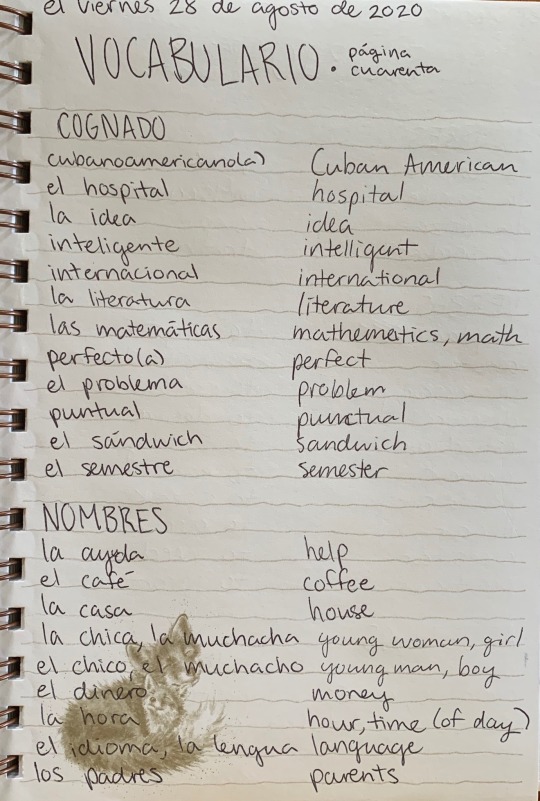 el viernes 28 de agosto de 2020
VOCABULARIO • página cuarenta
COGNADO
cubanoamericano(a) Cuban American
el hospital hospital
la idea idea
inteligente intelligent
internacional international
la literatura literature
las matemáticas mathematics, math
perfecto(a) perfect
el problema problem
puntual punctual
el sándwich sandwich
el semestre semester
NOMBRES
la ayuda help
el café coffee
la casa house
la chica, la muchacha young woman, girl
el chico, el muchacho young man, boy
el dinero money
la hora hour, time (of day)
el idioma, la lengua language
los padres parents